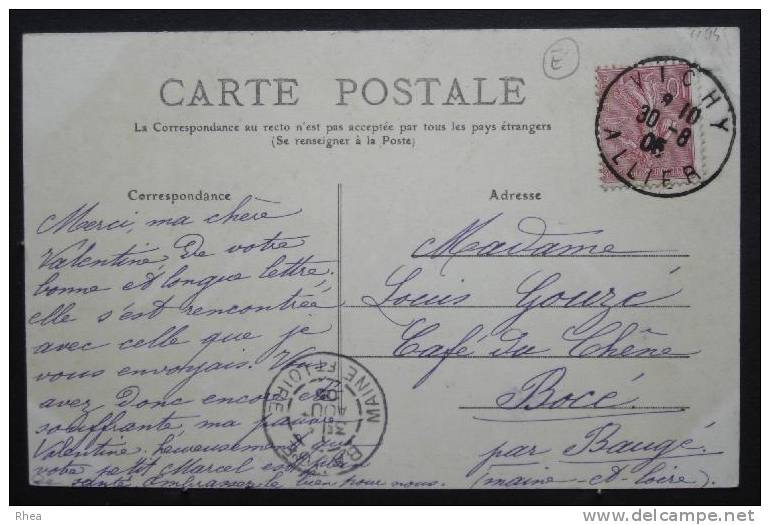 CARTE POSTALE
La Correspondance au recto n'est pas acceptée par tous les pays étrangers
(Se renseigner à la Poste)
E
VICHY
9 10
30 -8
05
ALLIER
Correspondance
Merci, ma chère
Valentine de votre
bonne et longue lettre.
elle s'est rencontrée
avec celle que je
vous envoyais. Vous
avez donc encore été
souffrante ma pauvre
Valentine, heureusement que
votre petit Marcel est plein
de santé. Embrassez le bien pour nous.
Adresse
Madame
Louis Gouzé
Café du Chêne
Bocé
par Baugé.
(maine-et-loire).
MAINE ET LOIRE
Rhea
www.delcampe.net